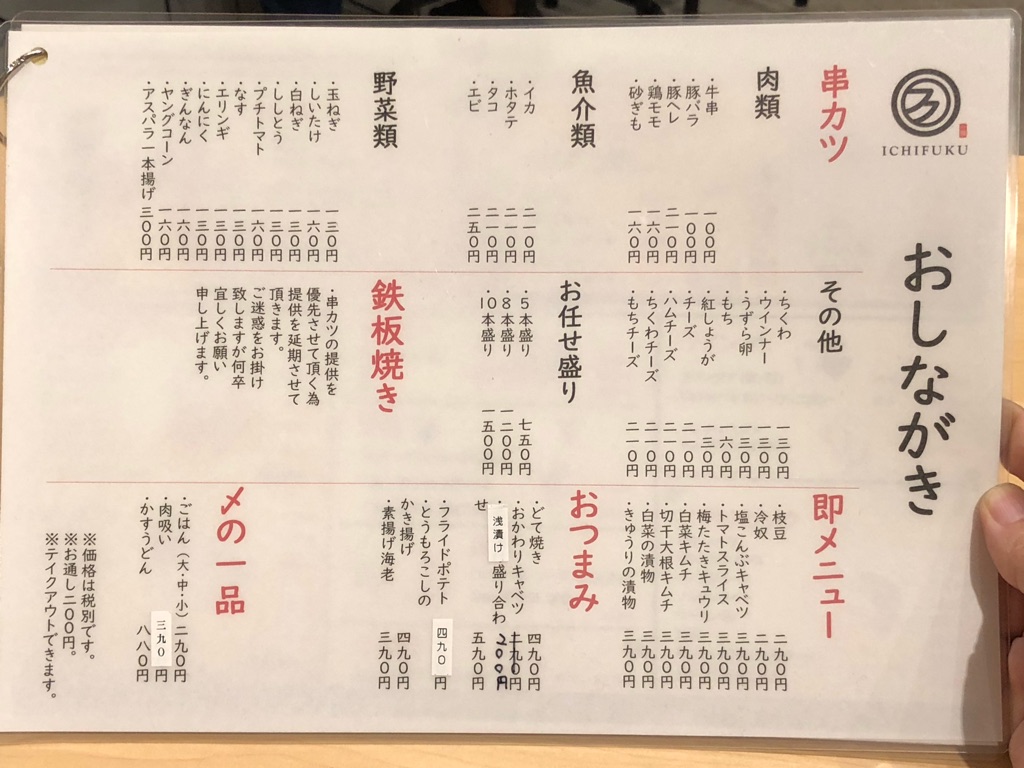 ICHIFUKU
おしながき
串カツ
肉類
・牛串 一〇〇円
・豚バラ 一〇〇円
・豚ヘレ 二一〇円
・鶏モモ 一六〇円
・砂ぎも 一六〇円
魚介類
・イカ 二一〇円
・ホタテ 二一〇円
・タコ 二一〇円
・エビ 二五〇円
野菜類
・玉ねぎ 一三〇円
・しいたけ 一六〇円
・白ねぎ 一三〇円
・ししとう 一三〇円
・プチトマト 一六〇円
・なす 一三〇円
・エリンギ 一三〇円
・にんにく 一三〇円
・ぎんなん 一六〇円
・ヤングコーン 一六〇円
・アスパラ一本揚げ 三〇〇円
その他
・ちくわ 一三〇円
・ウインナー 一三〇円
・うずら卵 一三〇円
・もち 一六〇円
・紅しょうが 一三〇円
・チーズ 二一〇円
・ハムチーズ 二一〇円
・ちくわチーズ 二一〇円
・もちチーズ 二一〇円
お任せ盛り
・5本盛り 七五〇円
・8本盛り 一二〇〇円
・10本盛り 一五〇〇円
鉄板焼き
・串カツの提供を
優先させて頂く為
提供を延期させて
頂きます。
ご迷惑をお掛け
致しますが何卒
宜しくお願い
申し上げます。
即メニュー
・枝豆 二九〇円
・冷奴 二九〇円
・塩こんぶキャベツ 三九〇円
・トマトスライス 三九〇円
・梅たたきキュウリ 三九〇円
・白菜キムチ 三九〇円
・切干大根キムチ 三九〇円
・白菜の漬物 三九〇円
・きゅうりの漬物 三九〇円
おつまみ
・どて焼き 四九〇円
・おかわりキャベツ 200円
・浅漬け盛り合わ
せ 五九〇円
・フライドポテト 四九〇円
・とうもろこしの
かき揚げ 四九〇円
・素揚げ海老 三九〇円
〆の一品
・ごはん（大・中・小） 二九〇円
・肉吸い 三九〇円
・かすうどん 八八〇円
※価格は税別です。
※お通し二〇〇円。
※テイクアウトできます。